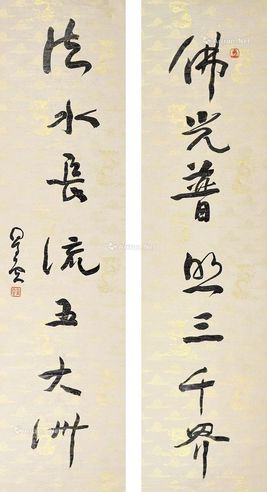 佛光普照三千界
法水長流五大洲
星雲